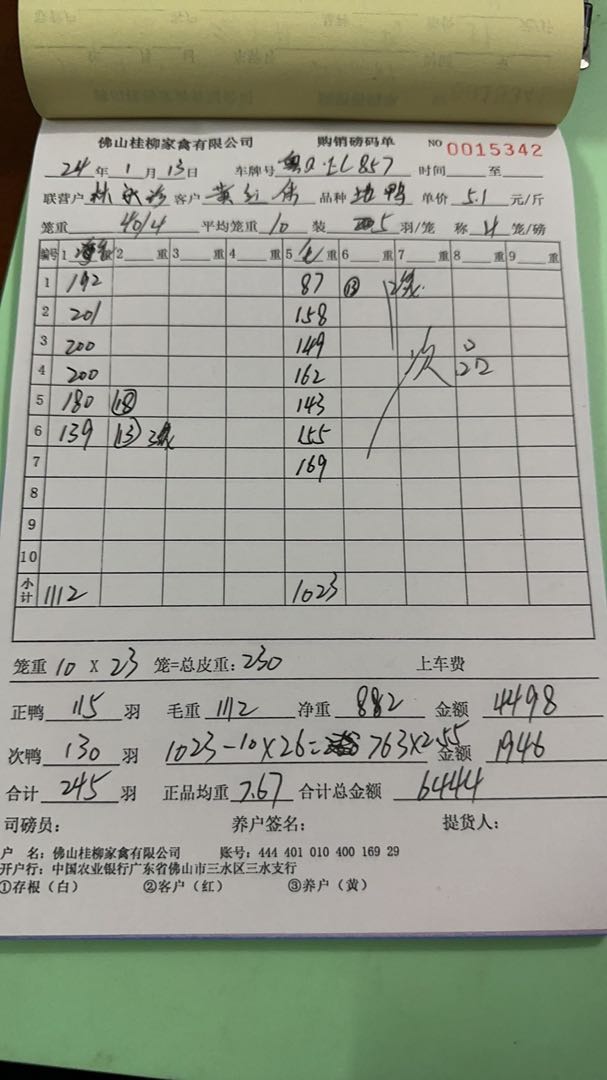 佛山桂柳家禽有限公司 购销磅码单 NO 0015342
24年1月13日 车牌号 857 时间 至
联营户 林 客户 黄 伟 品种 边鸭 单价 5.1 元/斤
笼重 40/4 平均笼重 10 装 5 羽/笼 称 4 笼/磅
编号 1 重 2 重 3 重 4 重 5 重 6 重 7 重 8 重 9 重
1 192 87 ⑬ 2
2 201 158
3 200 149 次
4 200 162
5 180 ⑱ 143
6 139 ⑬ 155
7 169
8
9
10
小计 1112 1023
笼重 10 X 23 笼=总皮重: 230 上车费
正鸭 115 羽 毛重 1112 净重 882 金额 4498
次鸭 130 羽 1023-10×26= 763×2.55 金额 1946
合计 245 羽 正品均重 7.67 合计总金额 6444
司磅员: 养户签名: 提货人:
户 名: 佛山桂柳家禽有限公司 账号: 444 401 010 400 169 29
开户行: 中国农业银行广东省佛山市三水区三水支行
①存根（白） ②客户（红） ③养户（黄）